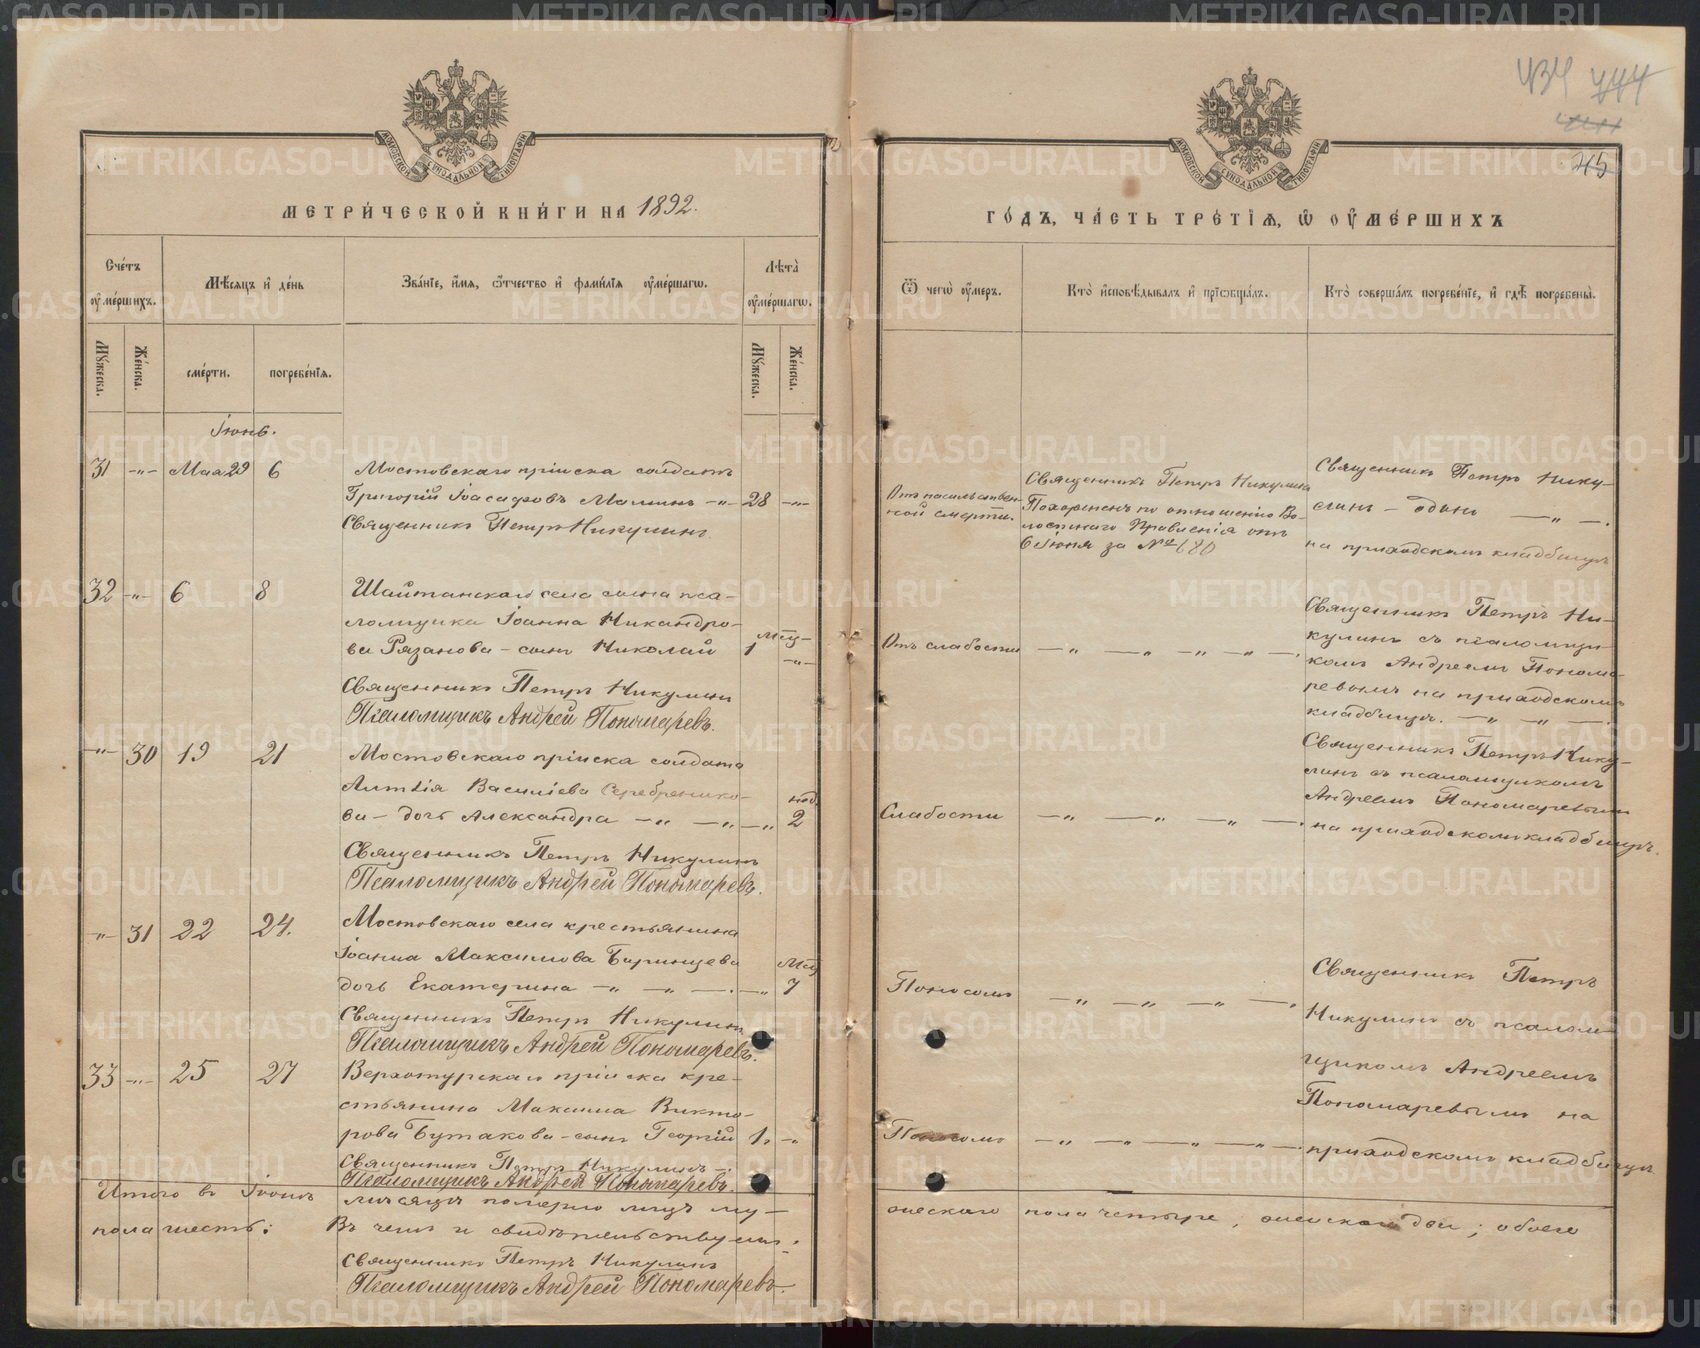 МЕТРИ́ЧЕСКОЙ КНИ́ГИ НА 1892.
Сче́тъ ѹ҆ме́ршихъ.
Мѣ́сяцъ и҆ де́нь
Зва́нїе, и҆́мя, ѻ҆́тчество и҆ фами́лїя ѹ҆ме́ршагѡ.
Лѣта̀ ѹ҆ме́ршагѡ.
Мꙋ́жеска.
Же́нска.
сме́рти.
погребе́нїя.
Мꙋ́жеска.
Же́нска.
Іюнь.
31 -"- Мая 29 6 Мостовскаго пріиска солдатъ
Григорій Іоасафовъ Малинъ -"- 28 -"-
Священникъ Петръ Никулинъ.
32 -"- 6 8 Шайтанскаго села сына пса-
ломщика Іоанна Никандро-
ва Рязанова - сынъ Николай 1 мѣс. -"-
Священникъ Петръ Никулинъ
Псаломщикъ Андрей Пономаревъ.
-"- 30 19 21 Мостовскаго пріиска солдата
Василіева Серебренико-
ва - дочь Александра -"- -"- -"- нед. 2
Священникъ Петръ Никулинъ
Псаломщикъ Андрей Пономаревъ.
-"- 31 22 24. Мостовскаго села крестьянина
Іоанна Максимова
дочь Екатерина -"- -"- -"- мѣс. 7
Священникъ Петръ Никулинъ
Псаломщикъ Андрей Пономаревъ.
33 -"- 25 27 Верхотурскаго пріиска кре-
стьянина Викто-
рова Бутакова - сынъ Георгій 1. -"-
Священникъ Петръ Никулинъ.
Псаломщикъ Андрей Пономаревъ.
Итого въ Іюнѣ мѣсяцѣ померло лицъ му-
пола шесть. Въ чемъ и свидѣтельствуемъ:
Священникъ Петръ Никулинъ
Псаломщикъ Андрей Пономаревъ.
434 444
45
ГО́ДЪ, ЧА́СТЬ ТРЕ́ТЇЯ, Ѡ҆ ОУ҆МЕ́РШИХЪ
Ѿ чегѡ̀ ѹ҆́меръ.
Кто̀ и҆сповѣ́дывалъ и҆ прїѡбща́лъ.
Кто̀ соверша́лъ погребе́нїе, и҆ гдѣ̀ погребены̀.
Отъ насильствен-
ной смерти.
Священникъ Петръ Никулинъ
Похороненъ по отношенію Во-
лостнаго Правленія отъ
6 Іюня за №
Священникъ Петръ Нику-
линъ - одинъ -"- -.
на приходскомъ кладбищѣ
Отъ слабости -"- -"- -"- -"- -.
Священникъ Петръ Ни-
кулинъ съ псаломщи-
комъ Андреемъ Понома-
ревымъ на приходскомъ
кладбищѣ. -"- -"- -.
Слабости -"- -"- -"- -.
Священникъ Петръ Нику-
линъ съ псаломщикомъ
Андреемъ Пономаревымъ
на приходскомъ кладбищѣ.
Поносомъ -"- -"- -"- -.
Священникъ Петръ
Никулинъ съ псалом-
щикомъ Андреемъ
Пономаревымъ на
приходскомъ кладбищѣ
Поносомъ -"- -"- -"- -"- -.
жескаго пола четыре, женскаго два; обоего